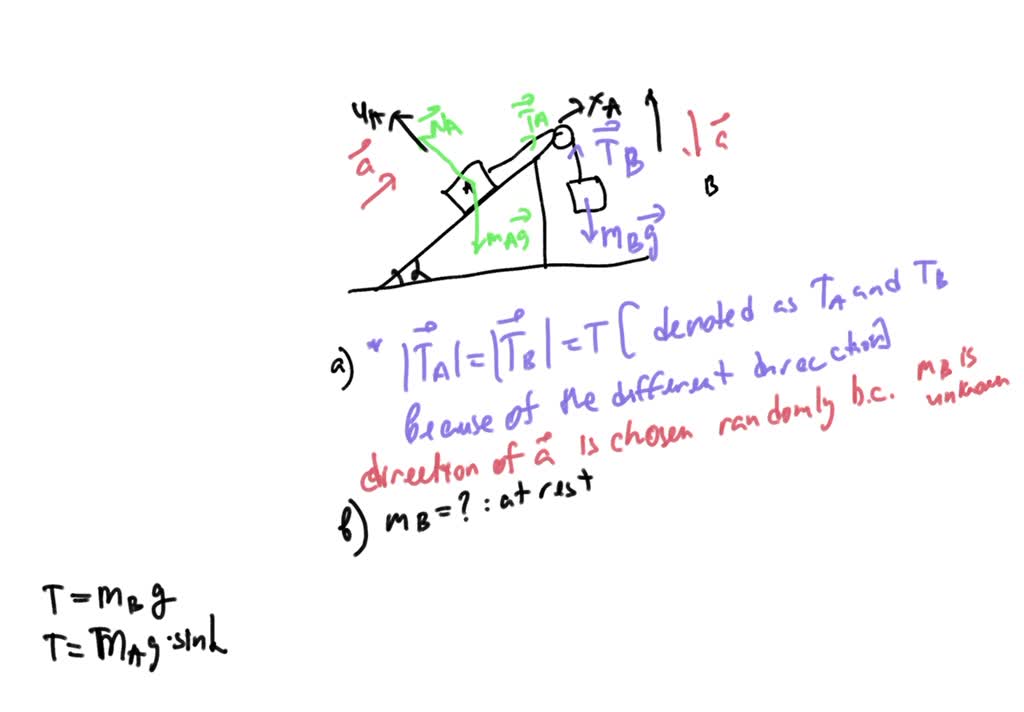 yA N⃗A T⃗A xA
a⃗ T⃗B a⃗
A B
mAg⃗ mBg⃗
α
a) * |T⃗A| = |T⃗B| = T [denoted as TA and TB
because of the different direction]
direction of a⃗ is chosen randomly b.c. mB is unknown
b) mB = ? : at rest
T = mB g
T = mA g · sin α